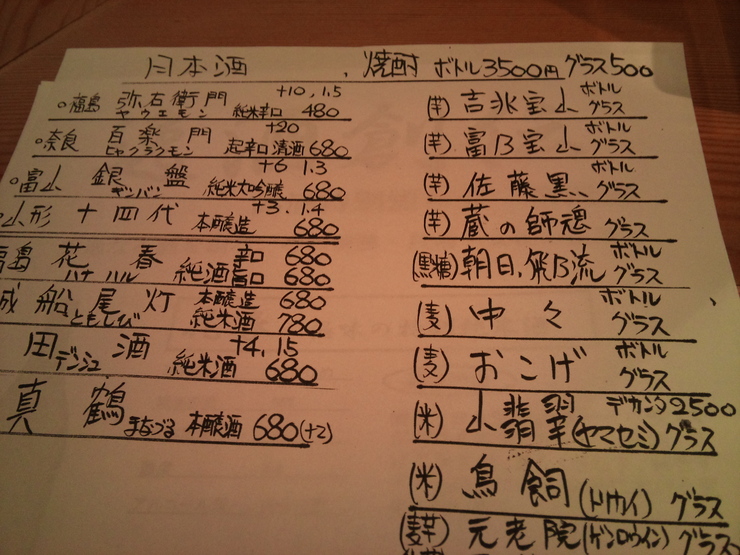 日本酒
+10, 1.5
○福島 弥右衛門 純米辛口 480
ヤウエモン
+20
○奈良 百楽門 超辛口 清酒 680
ヒャクラクモン
+6 1.3
○富山 銀盤 純米大吟醸 680
ギンバン
+3, 1.4
○山形 十四代 本醸造 680
福島 花春 辛口 680
ハナハル 純酒旨口 680
船尾灯 本醸造 680
ともしび 純米酒 780
+4, 15
田酒 純米酒 680
デンシュ
真鶴 まなづる 本醸酒 680 (+2)
焼酎 ボトル3500円 グラス500
(芋) 吉兆宝山 ボトル グラス
(芋) 富乃宝山 ボトル グラス
(芋) 佐藤黒 ボトル グラス
(芋) 蔵の師魂 グラス
(黒糖) 朝日, 飛乃流 ボトル グラス
(麦) 中々 ボトル グラス
(麦) おこげ ボトル グラス
(米) 山翡翠 (ヤマセミ) デカンタ2500 グラス
(米) 鳥飼 (トリカイ) グラス
(麦芋) 元老院 (ゲンロウイン) グラス